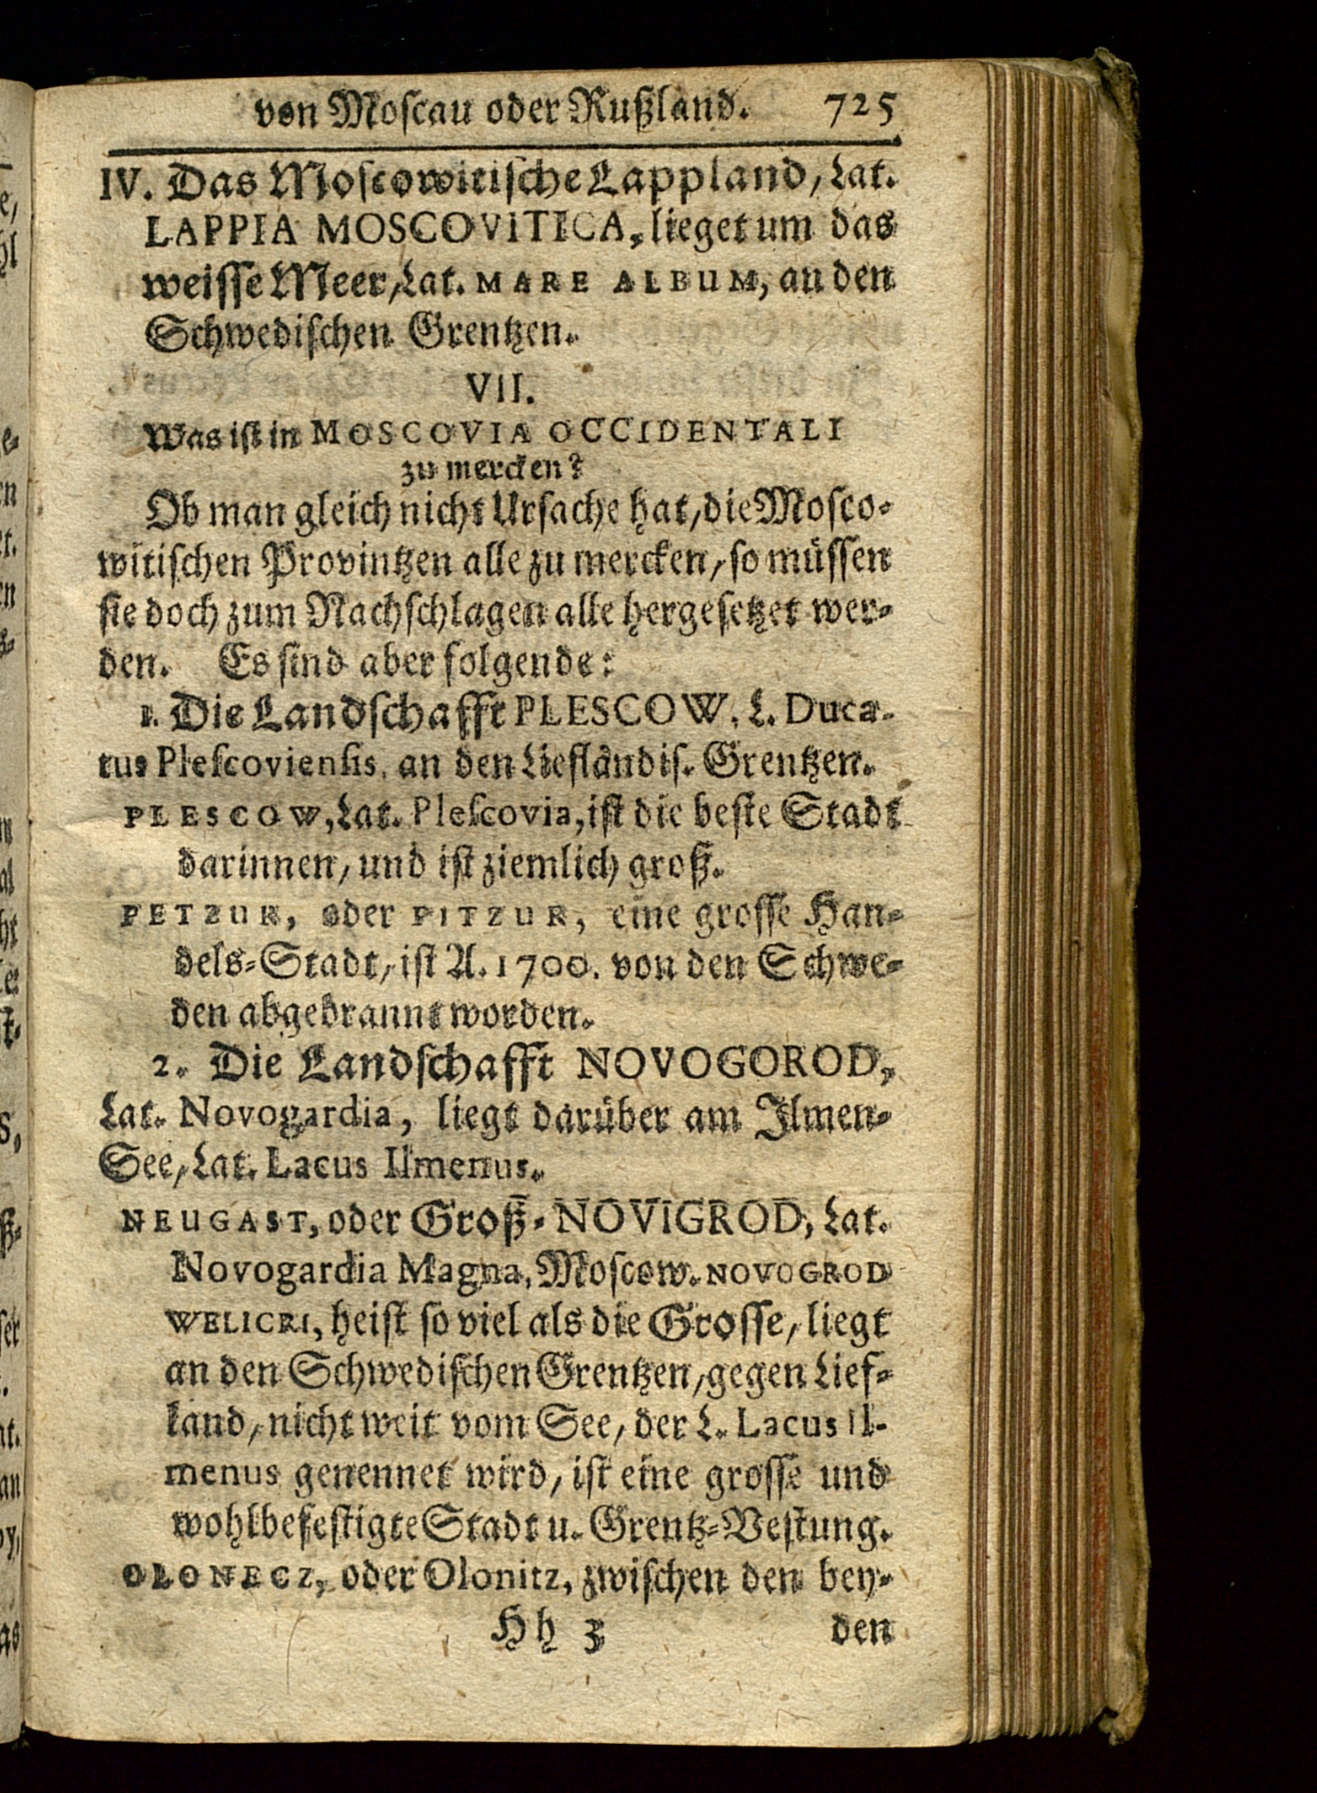 von Moscau oder Rußland. 725
IV. Das Moscowitische Lappland, Lat.
LAPPIA MOSCOVITICA, lieget um das
weisse Meer, Lat. MARE ALBUM, an den
Schwedischen Grentzen.
VII.
Was ist in MOSCOVIA OCCIDENTALI
zu mercken?
Ob man gleich nicht Ursache hat, die Mosco-
witischen Provintzen alle zu mercken, so müssen
sie doch zum Nachschlagen alle hergesetzet wer-
den. Es sind aber folgende:
1. Die Landschafft PLESCOW, L. Duca-
tus Plescoviensis, an den Liefländis. Grentzen.
PLESCOW, Lat. Plescovia, ist die beste Stadt
darinnen, und ist ziemlich groß.
PETZUR, oder PITZUR, eine grosse Han-
dels-Stadt, ist A. 1700. von den Schwe-
den abgebrannt worden.
2. Die Landschafft NOVOGOROD,
Lat. Novogardia, liegt darüber am Ilmen-
See, Lat. Lacus Ilmenus.
NEUGAST, oder Groß-NOVIGROD, Lat.
Novogardia Magna, Moscow. NOVOGROD
WELICKI, heist so viel als die Grosse, liegt
an den Schwedischen Grentzen, gegen Lief-
land, nicht weit vom See, der L. Lacus Il-
menus genennet wird, ist eine grosse und
wohlbefestigte Stadt u. Grentz-Vestung.
OLONECZ, oder Olonitz, zwischen den bey-
Hh 3 den